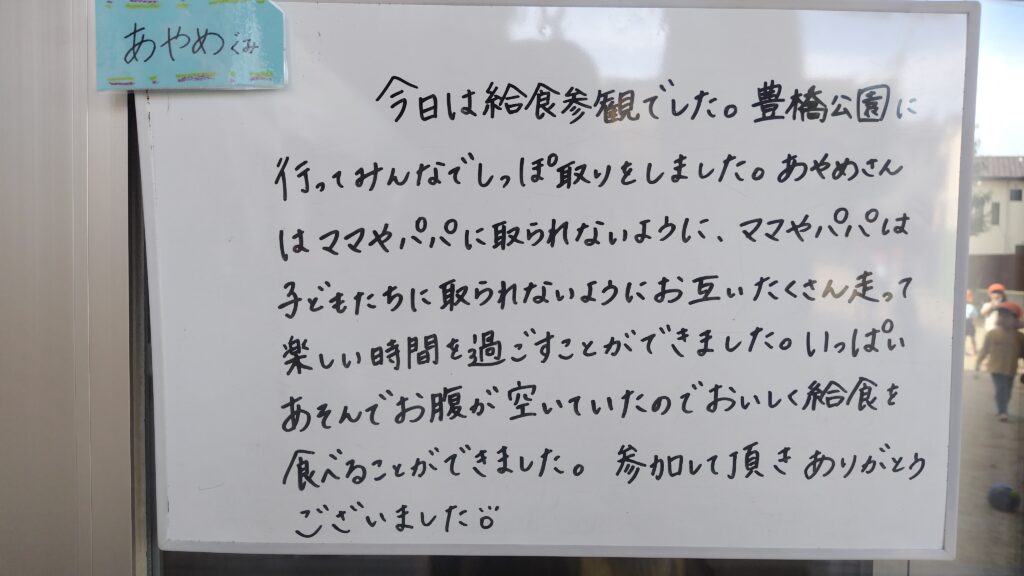 あやめぐみ
今日は給食参観でした。豊橋公園に
行ってみんなでしっぽ取りをしました。あやめさん
はママやパパに取られないように、ママやパパは
子どもたちに取られないようにお互いたくさん走って
楽しい時間を過ごすことができました。いっぱい
あそんでお腹が空いていたのでおいしく給食を
食べることができました。参加して頂きありがとう
ございました